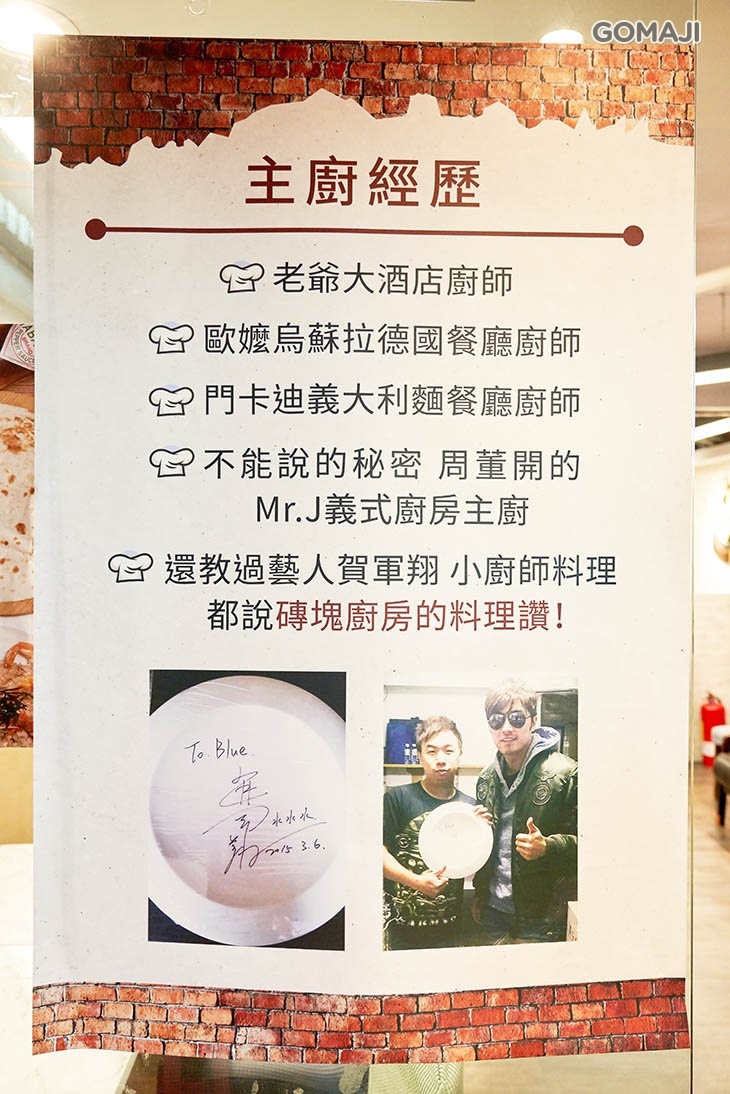 GOMAJI
主廚經歷
老爺大酒店廚師
歐嬤烏蘇拉德國餐廳廚師
門卡迪義大利麵餐廳廚師
不能說的秘密 周董開的
Mr.J義式廚房主廚
還教過藝人賀軍翔 小廚師料理
都說磚塊廚房的料理讚!
To. Blue.
2015. 3. 6.